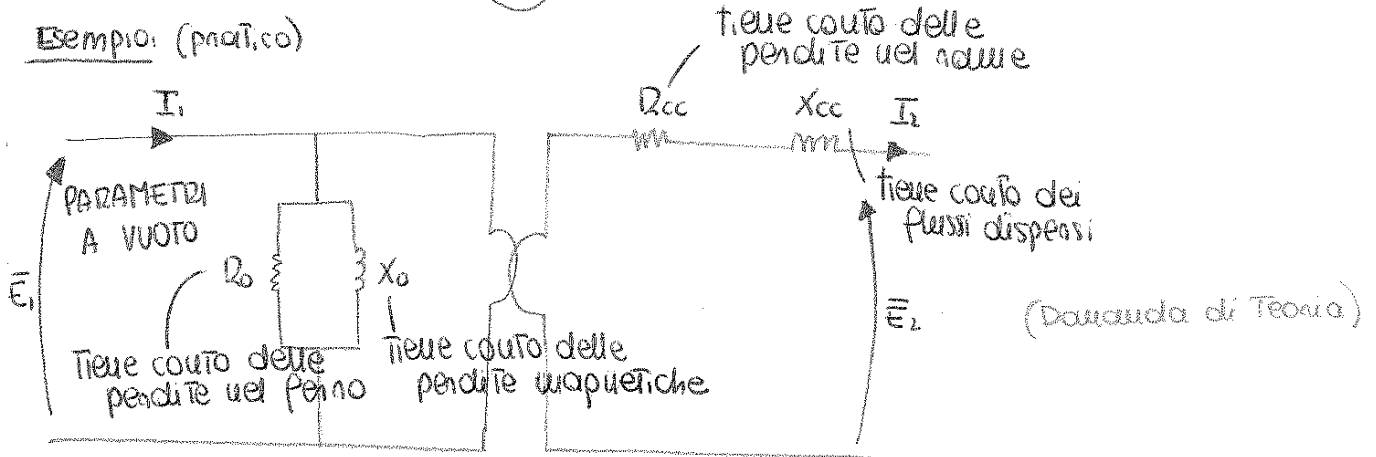 Esempio: (pratico)
tiene conto delle
perdite nel rame
I₁
Rcc
Xcc
I₂
PARAMETRI
A VUOTO
tiene conto dei
flussi dispersi
Ē₁
R₀
X₀
Ē₂
(Domanda di Teoria)
Tiene conto delle
perdite nel ferro
Tiene conto delle
perdite magnetiche